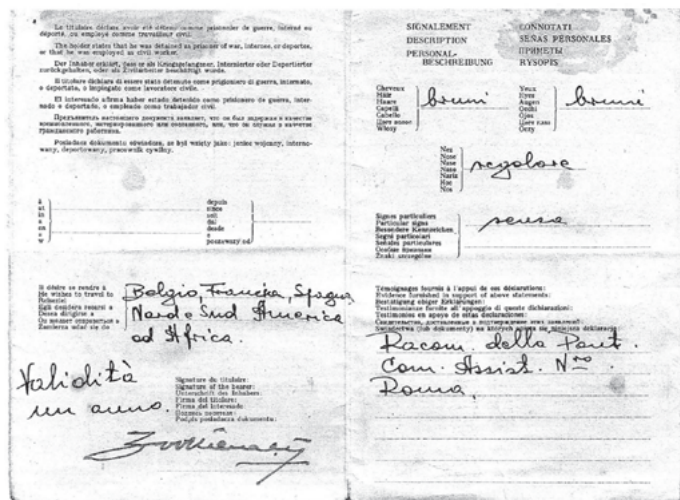 Le titulaire déclare avoir été détenu comme prisonnier de guerre, interné ou
déporté, ou employé comme travailleur civil.
The holder states that he was detained as prisoner of war, internee, or deportee,
or that he was employed as civil worker.
Der Inhaber erklärt, dass er als Kriegsgefangener, Internierter oder Deportierter
zurückgehalten, oder als Zivilarbeiter beschäftigt wurde.
Il titolare dichiara di essere stato detenuto come prigioniero di guerra, internato,
o deportato, o impiegato come lavoratore civile.
El interesado afirma haber estado detenido como prisionero de guerra, inter-
nado o deportado, o empleado como trabajador civil.
Posiadacz dokumentu oświadcza, że był wzięty jako: jeniec wojenny, interno-
wany, deportowany, pracownik cywilny.
à
at
in
a
en
в
w
depuis
since
seit
dal
desde
с
poczawszy od
Il désire se rendre à
He wishes to travel to
Belgio, Francia, Spagna
Nord e Sud America
ad Africa.
Validità
un anno.
Signature du titulaire:
Signature of the bearer:
Unterschrift des Inhabers:
Firma del titolare:
Firma del interesado:
Podpis posiadacza dokumentu:
SIGNALEMENT
DESCRIPTION
PERSONAL-
BESCHREIBUNG
CONNOTATI
SEÑAS PERSONALES
ПРИМЕТЫ
RYSOPIS
Cheveux
Hair
Haare
Capelli
Cabello
Włosy
bruni
Yeux
Eyes
Augen
Occhi
Ojos
Oczy
bruni
Nez
Nose
Nase
Naso
Nariz
Нос
Nos
regolare
Signes particuliers
Particular signs
Besondere Kennzeichen
Segni particolari
Señales particulares
Особые приметы
Znaki szczególne
senza
Témoignages fournis à l'appui de ces déclarations:
Evidence furnished in support of above statements:
Bestätigung einiger Erklärungen:
Testimonianze fornite all'appoggio di queste dichiarazioni:
Testimonios en apoyo de estas declaraciones:
Racom. della Pont.
Com. Assist. N.
Roma.